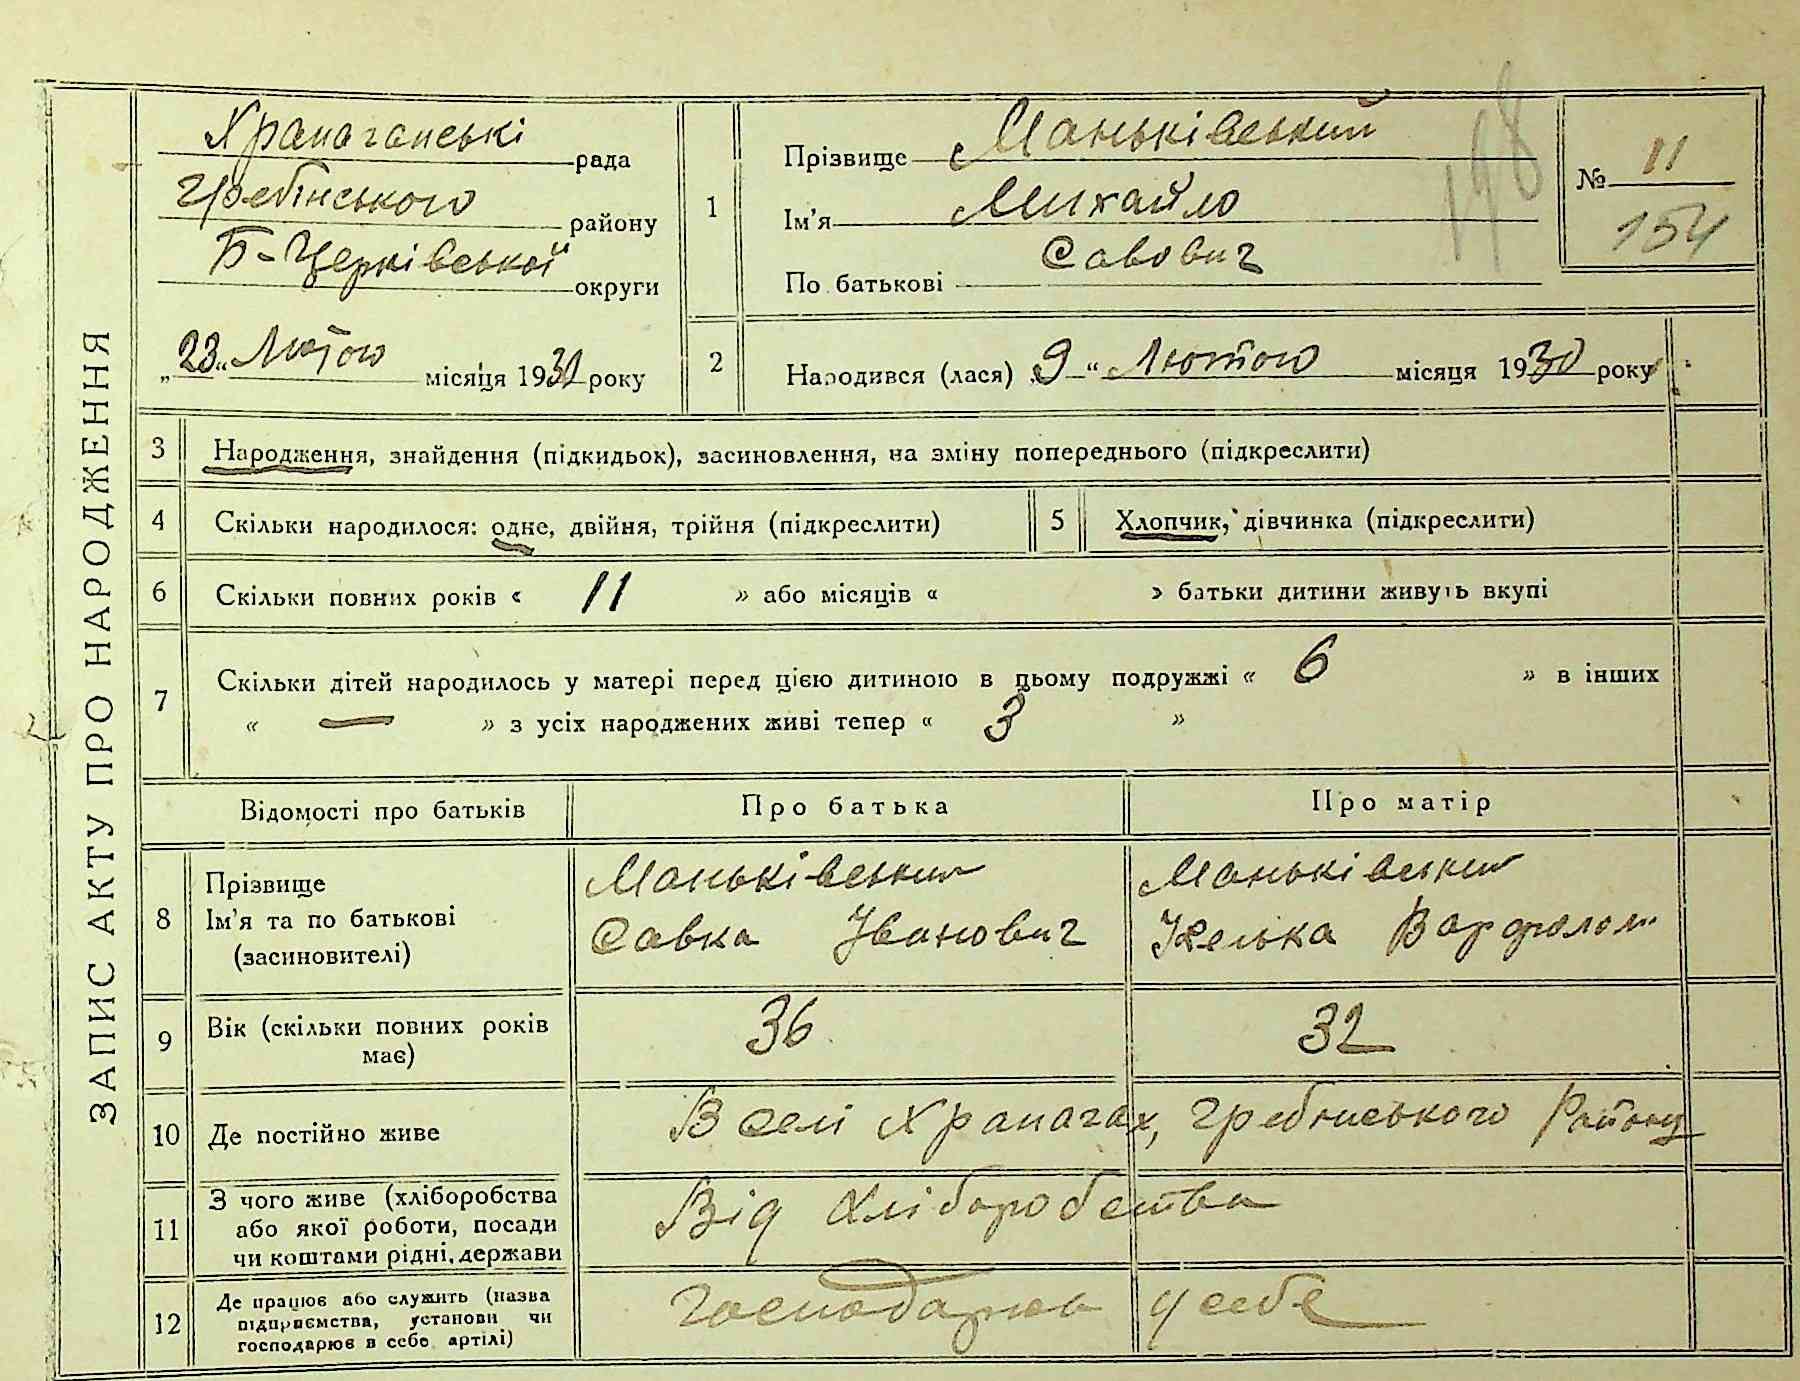 ЗАПИС АКТУ ПРО НАРОДЖЕННЯ
Храпачанські рада
Гребінського району
Б-Церківської округи
„23“ Лютого місяця 1930 року
1
Прізвище Маньківський
Ім'я Михайло
По батькові Савович
198
№ 11
154
2
Народився (лася) „9“ Лютого місяця 1930 року
3 Народження, знайдення (підкидьок), засиновлення, на зміну попереднього (підкреслити)
4 Скільки народилося: одне, двійня, трійня (підкреслити)
5 Хлопчик, дівчинка (підкреслити)
6 Скільки повних років « 11 » або місяців « » батьки дитини живуть вкупі
7 Скільки дітей народилось у матері перед цією дитиною в цьому подружжі « 6 » в інших
« — » з усіх народжених живі тепер « 3 »
Відомості про батьків Про батька Про матір
8
Прізвище
Ім'я та по батькові
(засиновителі)
Маньківський
Савка Іванович
Маньківськи
Варфолом.
9 Вік (скільки повних років
має)
36 32
10 Де постійно живе В селі Храпачах, Гребінського Району
11
З чого живе (хліборобства
або якої роботи, посади
чи коштами рідні, держави
Від Хліборобства
12
Де працює або служить (назва
підприємства, установи чи
господарює в себе артілі)
Господарює у себе